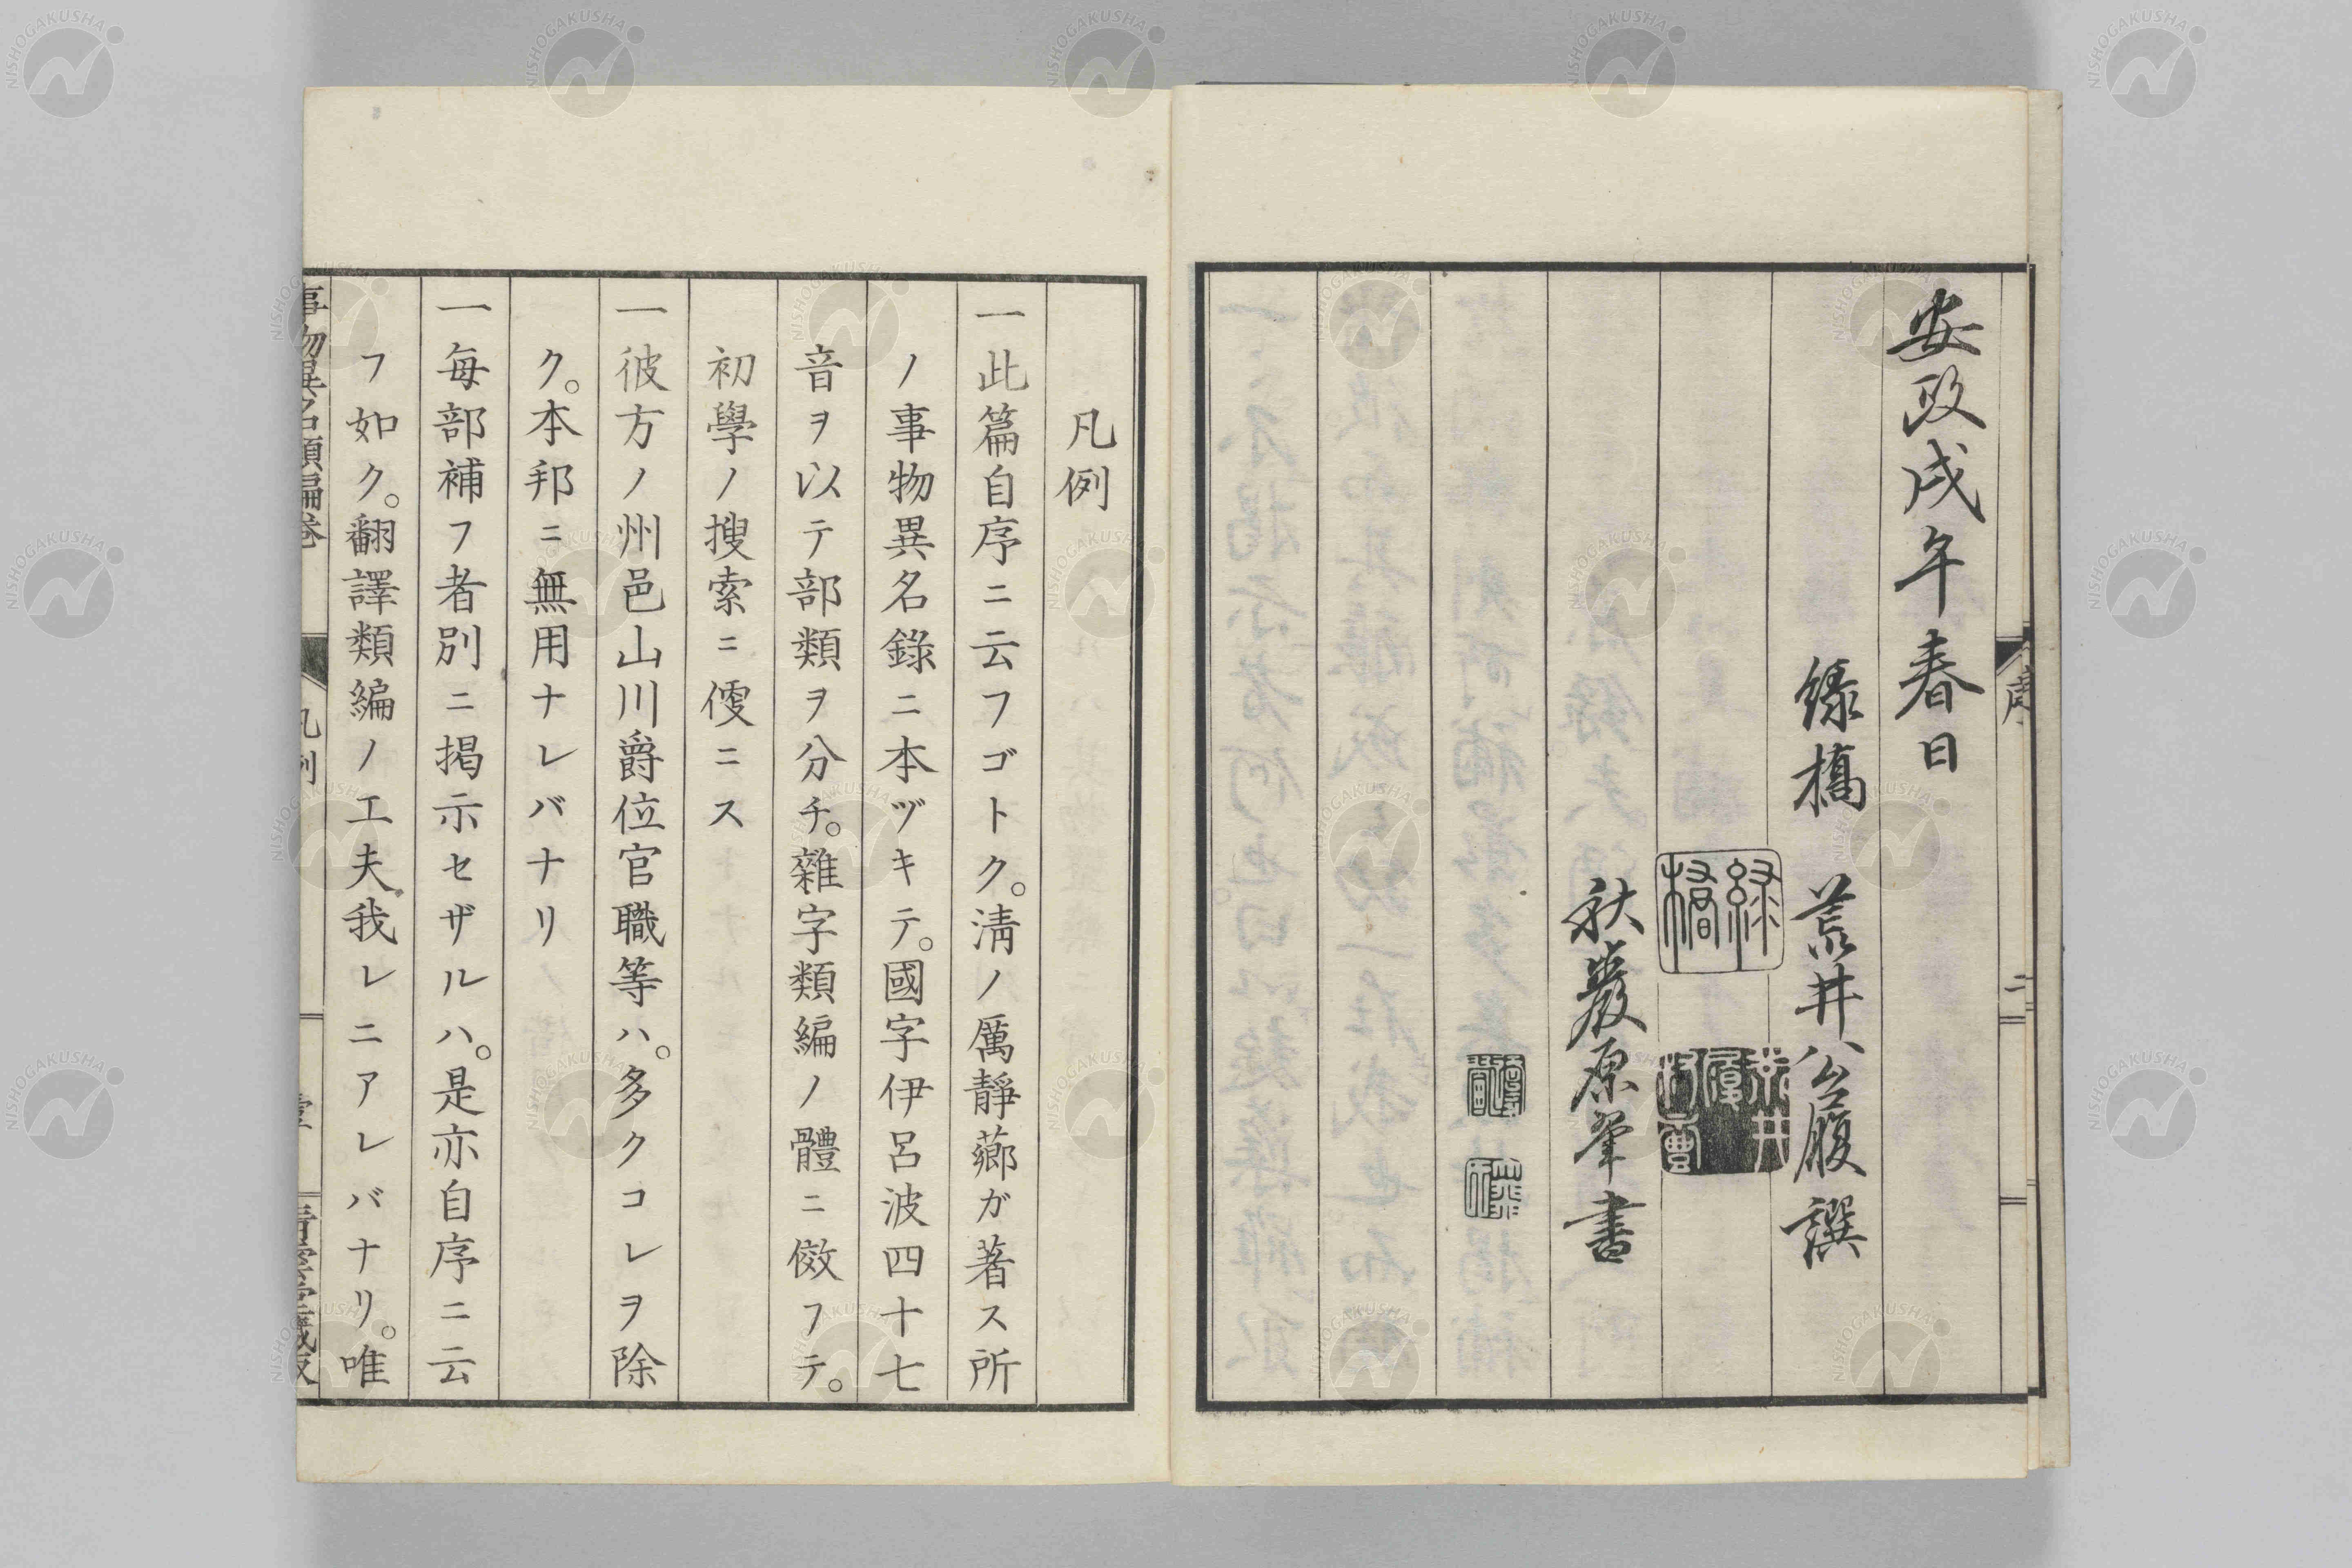 序
二
安政戌午春日
緑橋 荒井公履譔
緑橋
秋巖原翬書
凡例
一此篇自序ニ云フゴトク。淸ノ厲靜薌ガ著ス所
ノ事物異名錄ニ本ヅキテ。國字伊呂波四十七
音ヲ以テ部類ヲ分チ。雜字類編ノ體ニ傚フテ。
初學ノ搜索ニ㑏ニス
一彼方ノ州邑山川爵位官職等ハ。多クコレヲ除
ク。本邦ニ無用ナレバナリ
一每部補フ者別ニ揭示セザルハ。是亦自序ニ云
フ如ク。翻譯類編ノ工夫我レニアレバナリ。唯
事物異名類編卷
凡例
NISHOGAKUSHA